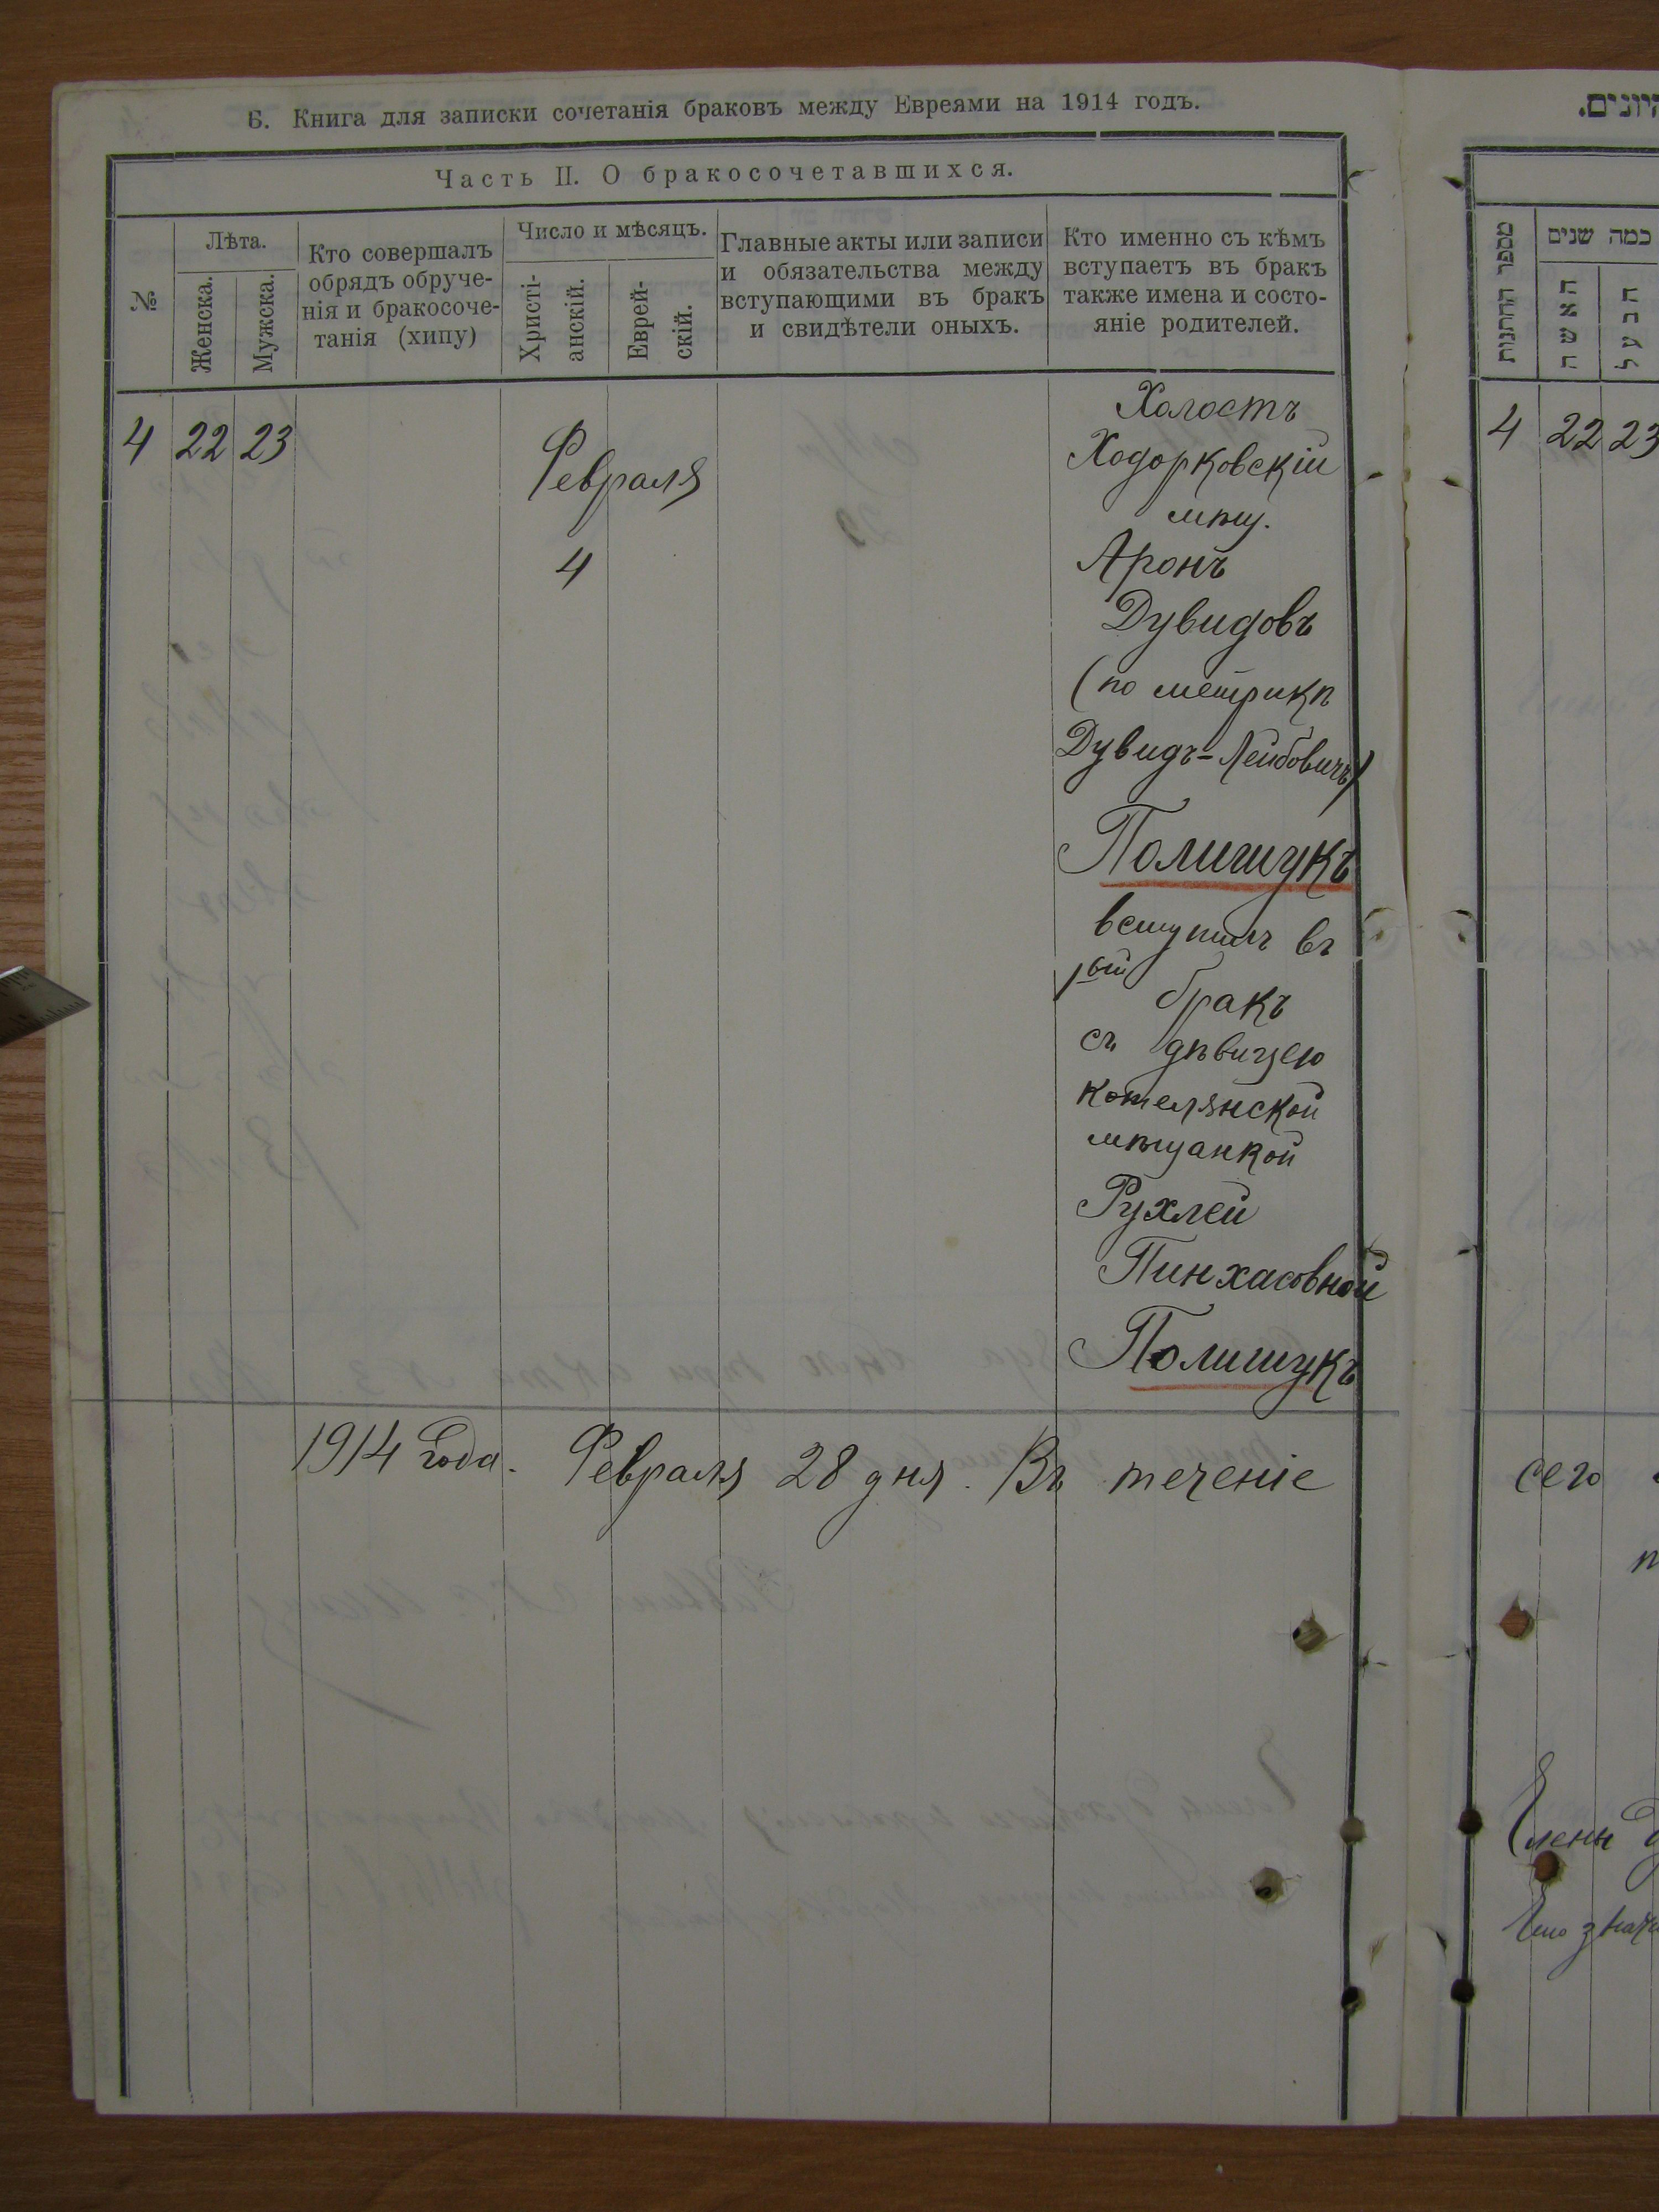 Б. Книга для записки сочетанія браковъ между Евреями на 1914 годъ.
Часть II. О бракосочетавшихся.
№
Лѣта.
Женска.
Мужска.
Кто совершалъ
обрядъ обруче-
нія и бракосоче-
танія (хипу)
Число и мѣсяцъ.
Христі-
анскій.
Еврей-
скій.
Главные акты или записи
и обязательства между
вступающими въ бракъ
и свидѣтели оныхъ.
Кто именно съ кѣмъ
вступаетъ въ бракъ
также имена и состо-
яніе родителей.
4 22 23
Февраля
4
Холостъ
Ходорковскій
мѣщ.
Аронъ
Дувидовъ
(по метрикѣ
Дувидъ-Лейбовичъ)
Полищукъ
вступилъ въ
1ый
бракъ
съ дѣвицею
Котелянской
мѣщанкой
Рухлей
Пинхасовной
Полищукъ
1914 года. Февраля 28 дня. Въ теченіе
מספר החתנות
כמה שנים
האשה
הבעל
4 22 23
сего
Члены